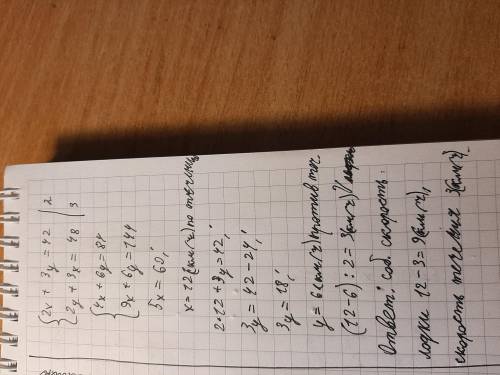 {2x + 3y = 42 | 2
{2y + 3x = 48 | 3
{4x + 6y = 84
{9x + 6y = 144
5x = 60;
x = 12 (км/ч) по течению
2·12 + 3y = 42;
3y = 42 - 24;
3y = 18;
y = 6 (км/ч) против теч.
(12-6) : 2 = 3 (км/ч)
Ответ: соб. скорость
лодки 12 - 3 = 9 (км/ч),
скорость течения 3 (км/ч)